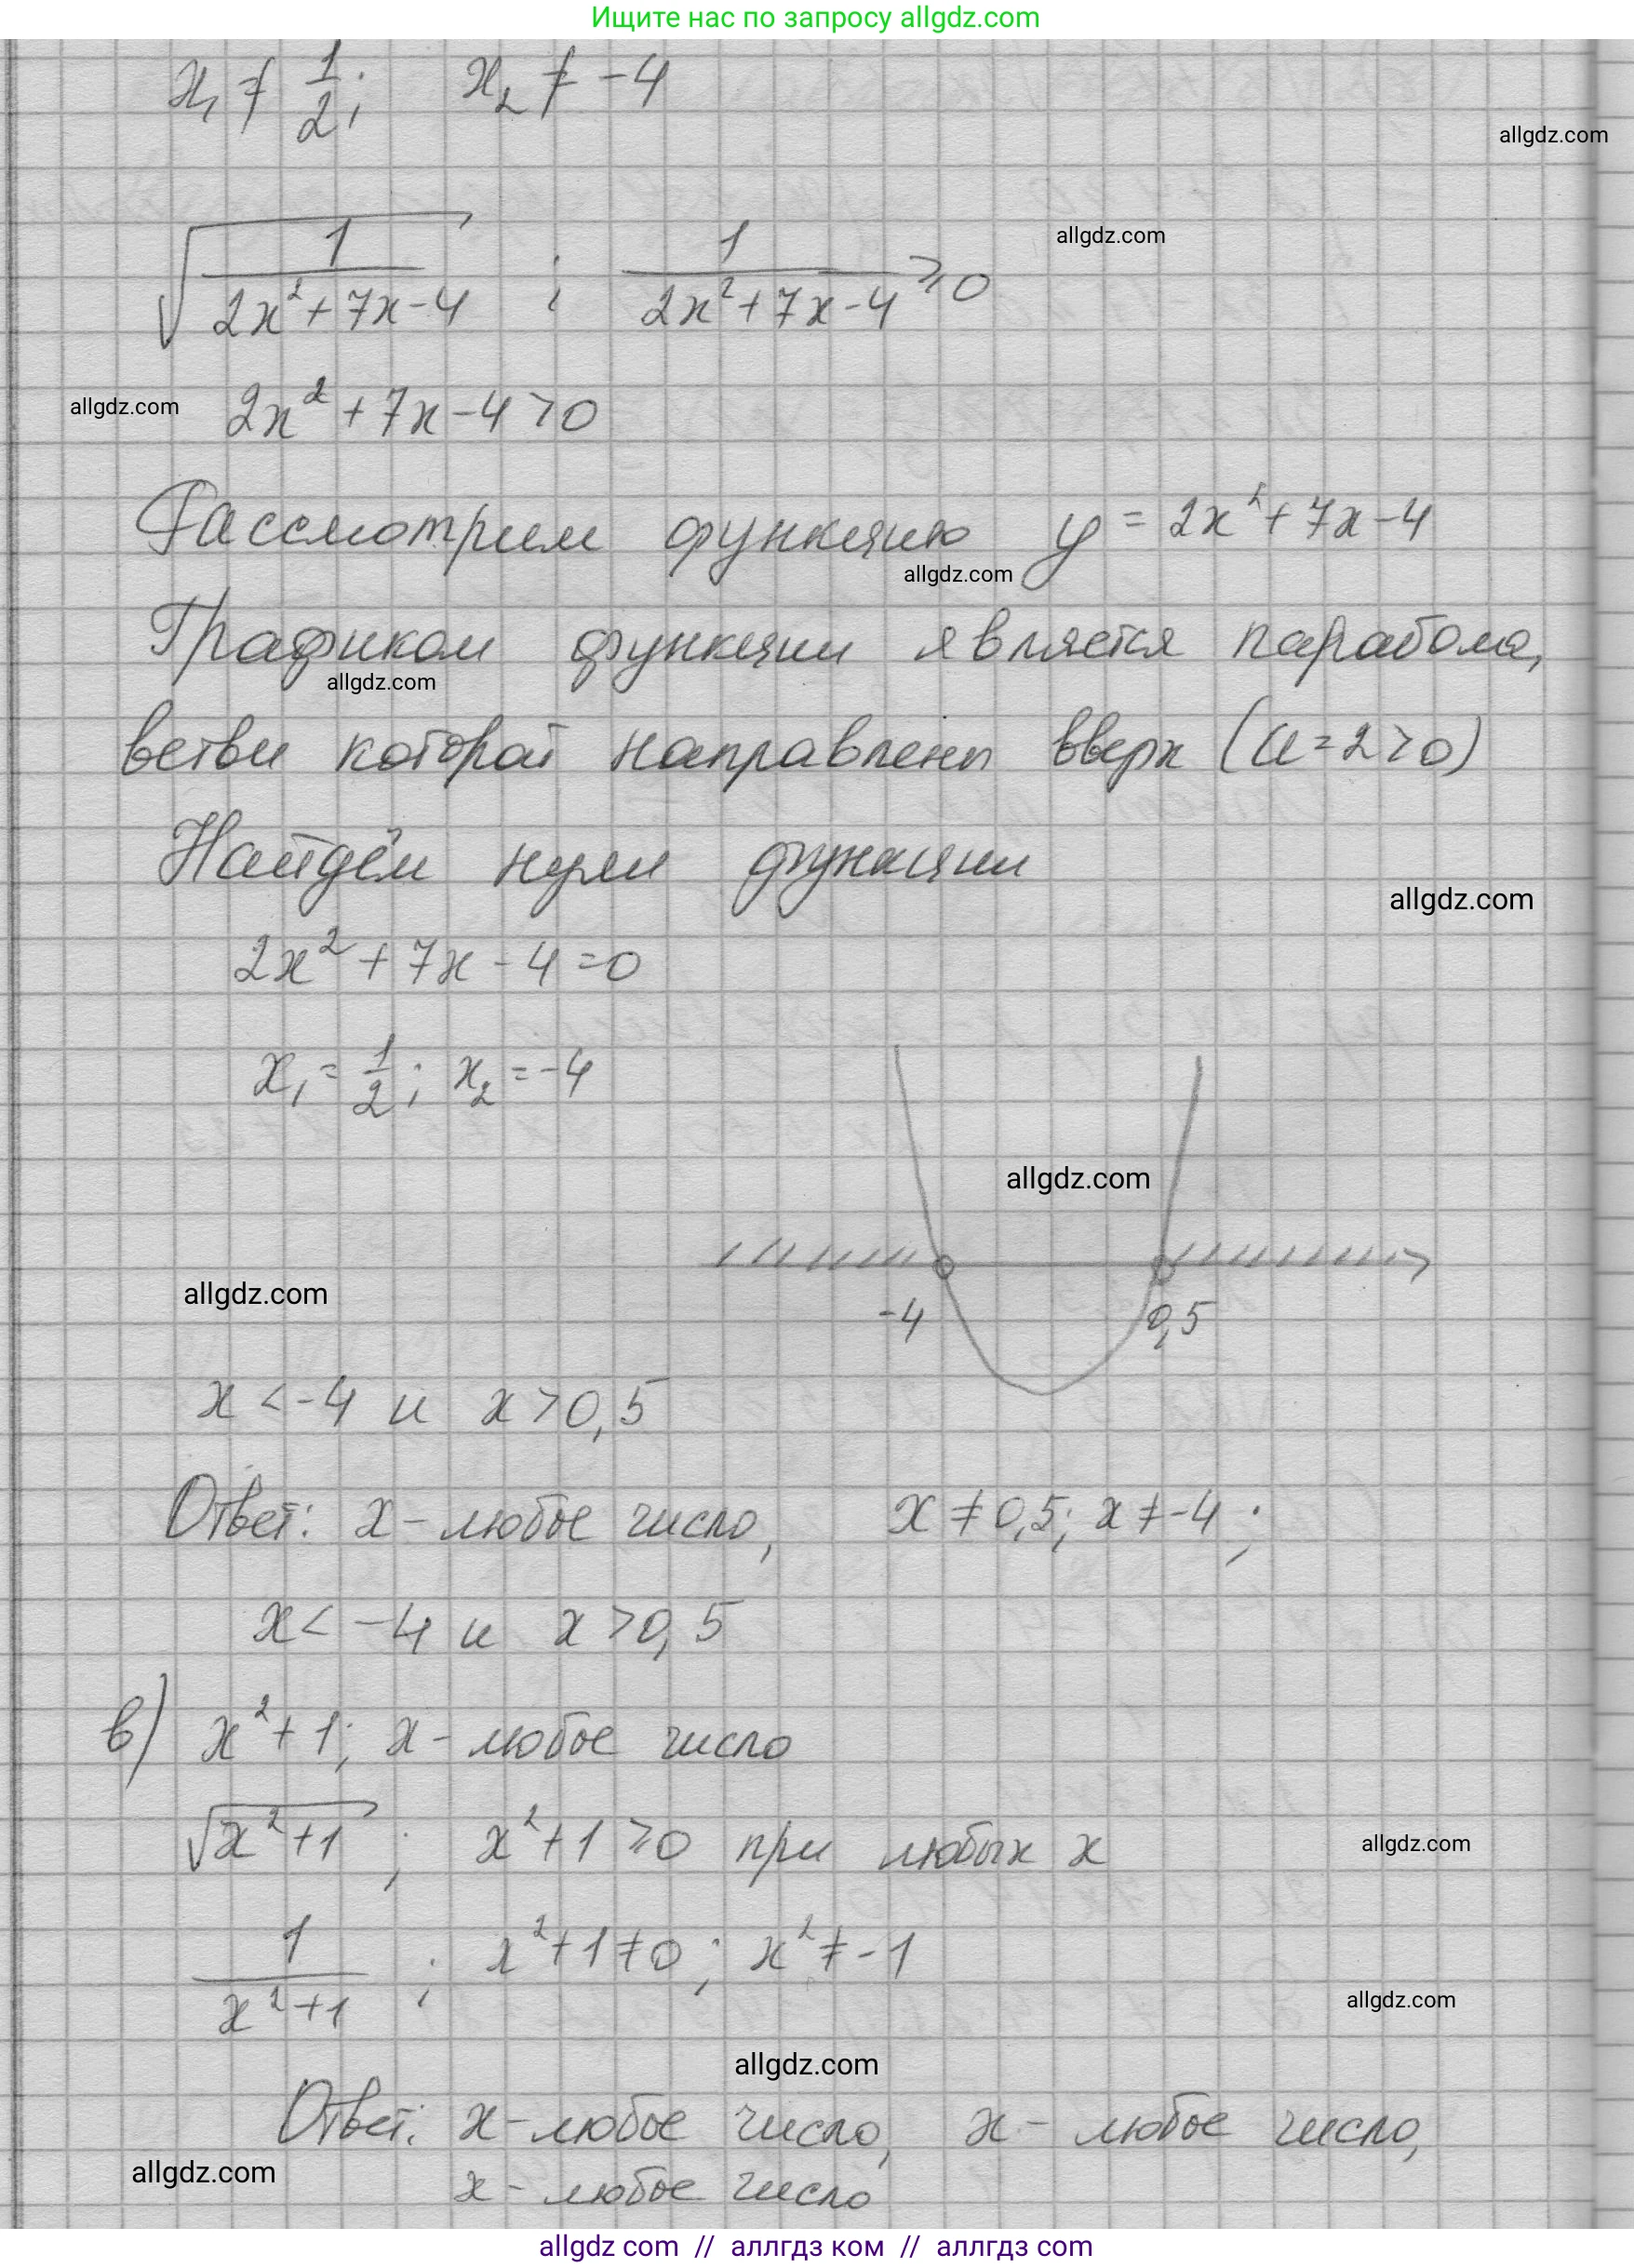 Ищите нас по запросу allgdz.com
x₁ ≠ 1/2; x₂ ≠ -4
allgdz.com
√(1/(2x²+7x-4)) ; 1/(2x²+7x-4) ≥ 0
allgdz.com
2x²+7x-4>0
allgdz.com
Рассмотрим функцию y = 2x²+7x-4
allgdz.com
Графиком функции является парабола,
allgdz.com
ветви которой направлены вверх (a=2>0)
Найдём нули функции
allgdz.com
2x²+7x-4=0
x₁ = 1/2; x₂ = -4
allgdz.com
allgdz.com
-4 0,5
x<-4 и x>0,5
Ответ: x - любое число, x ≠ 0,5; x ≠ -4;
x < -4 и x > 0,5
в) x²+1; x - любое число
√(x²+1) ; x²+1 ≥ 0 при любых x
allgdz.com
1/(x²+1) ; x²+1≠0; x²≠-1
allgdz.com
allgdz.com
Ответ: x - любое число, x - любое число,
allgdz.com
x - любое число
allgdz com // аллгдз ком // аллгдз com